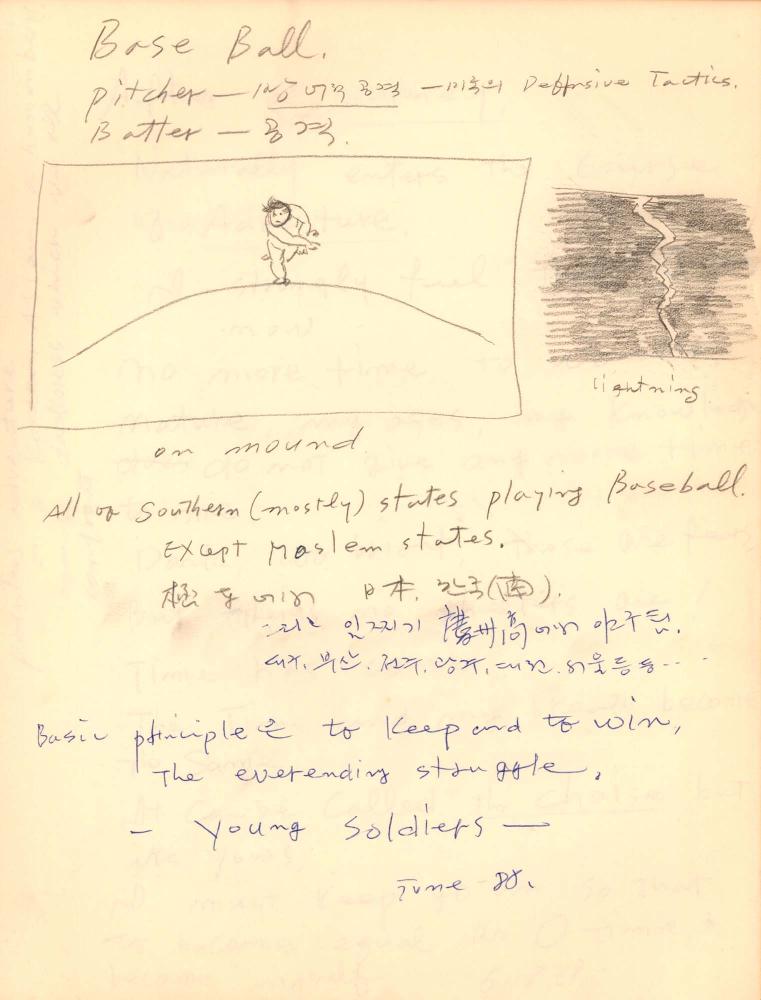 Base Ball.
pitcher — 방어적 공격 — 미국의 Deffnsive Tactics.
Batter — 공격.
lightning
on mound
All of Southern (mostly) states playing Baseball.
Except Moslem states.
極東에서 日本, 한국(南).
일찌기 高에서 야구팀.
대구, 부산, 전주, 광주, 대전, 서울 등등---
Basic principle은 to keep and to win,
The everending struggle.
— Young Soldiers —
June 88.